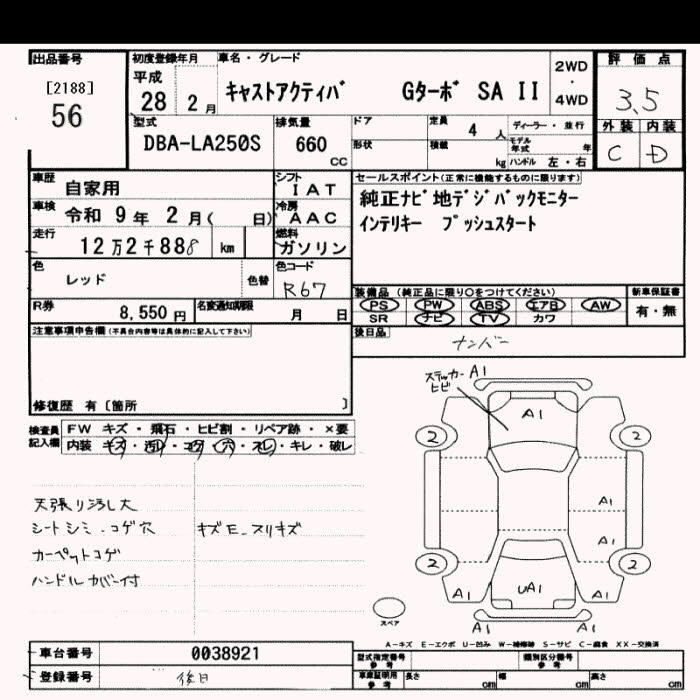 出品番号
[2188]
56
初度登録年月
平成
28 2 月
車名・グレード
キャストアクティバ Gターボ SA II
2WD
・
4WD
評価点
3.5
外装 内装
C D
型式
DBA-LA250S
排気量
660
CC
ドア
形状
定員 4 人
積載 kg
ディーラー・並行
モデル年式 年
ハンドル 左・右
車歴 自家用
シフト IAT
車検 令和 9 年 2 月( 日)
冷房 AAC
走行 12 万 2 千 888 km
燃料 ガソリン
色 レッド
色替
色コード R67
R券 8,550 円
名変通知期限 月 日
セールスポイント(正常に機能するものに限ります)
純正ナビ 地デジ バックモニター
インテリキー プッシュスタート
装備品 (純正品に限り○をつけてください)
PS PW ABS エアB AW
SR ナビ TV カワ
新車保証書
有・無
後日品
ナンバー
注意事項申告欄(不具合内容等は具体的に記入して下さい)
修復歴 有〔箇所 〕
検査員記入欄
FW キズ・飛石・ヒビ割・リペア跡・×要
内装 キズ・汚れ・コゲ・穴・スレ・キレ・破レ
天張り汚し大
シートシミ・コゲ穴
カーペットコゲ
ハンドルカバー付
キズE-スリキズ
ステッカー
ヒビ
A1
A1
2 2
A1
A1
2 2
A1 UA1 A1
A1 A1
スペア
A-キズ E-エクボ U-凹み W-補修跡 S-サビ C-腐食 XX-交換済
車台番号 0038921
登録番号 後日
型式指定番号
参考
類別区分番号
参考
車庫証明用
参考
長さ cm 幅 cm 高さ cm